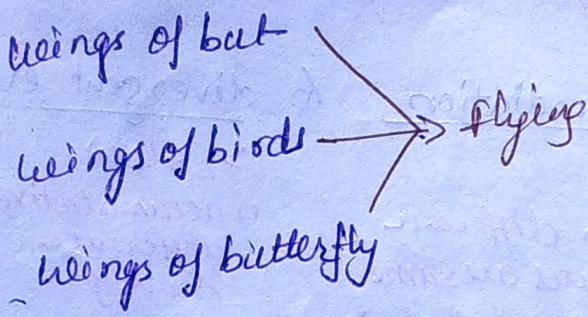 wings of bat
wings of birds → flying
wings of butterfly